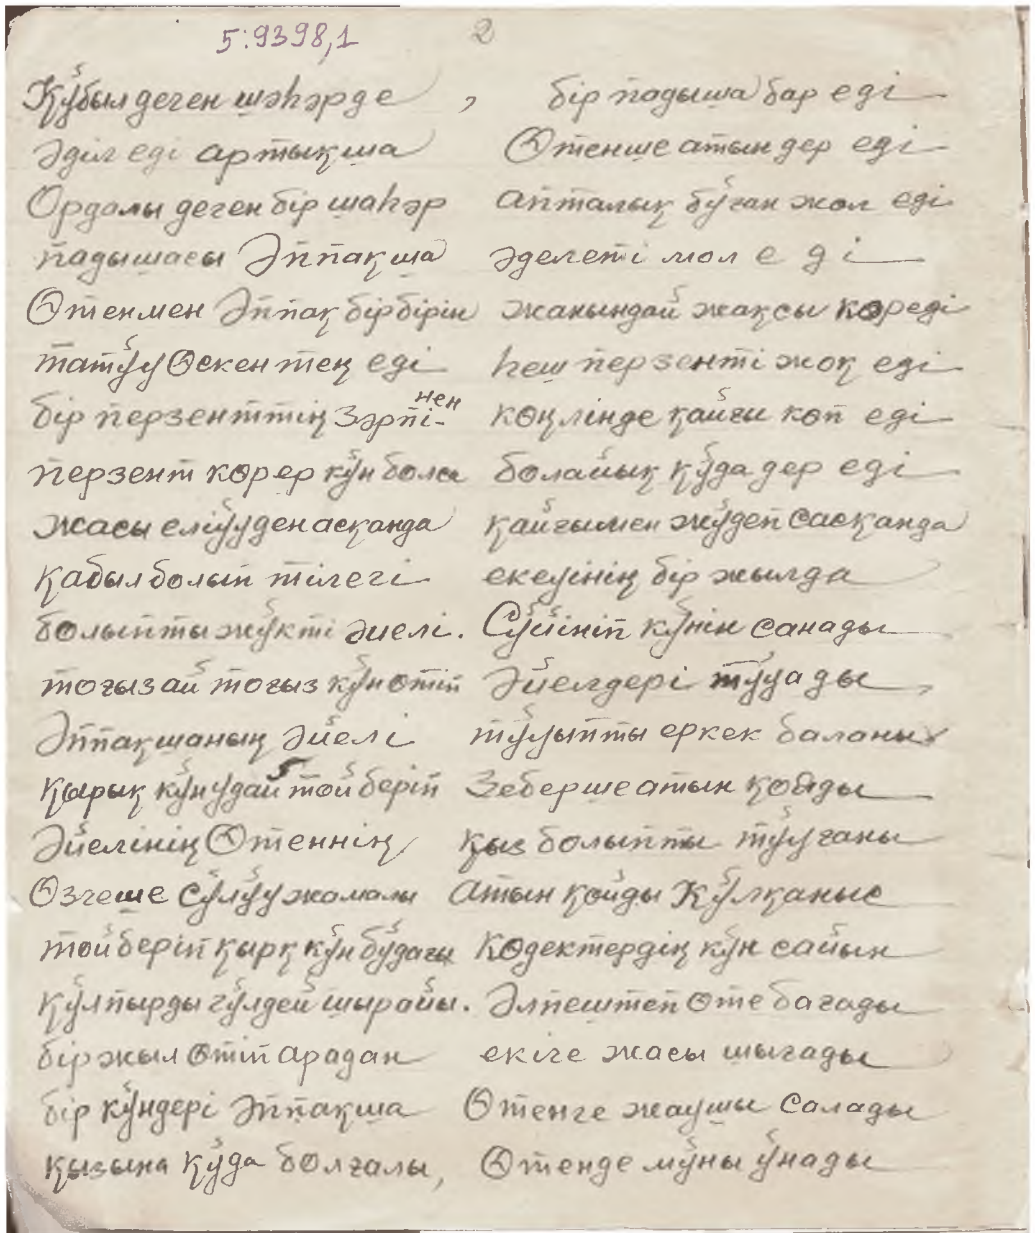 5:9398,1 2
Күбыл деген шәһәрде, бір падыша бар еді
Әділ еді артықша Өтенше атын дер еді
Ордалы деген бір шаһәр апталық бұған жол еді
падышасы Әппақша әделеті мол еді
Өтенмен Әппақ бір бірін жанындай жақсы көреді
татұу Өскен тең еді һеш перзенті жоқ еді
бір перзенттің Зәрпі-нен көңлінде қайғы көп еді
перзент көрер күн болса болайық құда дер еді
жасы еліүуден асқанда қайғымен жүдеп сасқанда
қабыл болып тілегі екеуінің бір жылда
болыпты жүкті әиелі. Сүйініп күнін санады
тоғыз ай тоғыз күн өтіп Әйелдері тұуады,
Әппақшаның Әйелі тұуыпты еркек баланы
қырық күн ұдай той беріп Зеберше атын қойды
Әйелінің Өтеннің қыз болыпты тұуғаны
Өзгеше сұлұу жамалы Атын қойды Күлқаныс
той беріп қырқ күн бұдағы Көдектердің күн сайын
құлпырды гүлдей шырайы. Әлпештеп өте бағады
бір жыл өтіп арадан екіге жасы шығады
бір күндері Әппақша Өтенге жаушы салады
қызына құда болғалы, Өтенде мұны ұнады